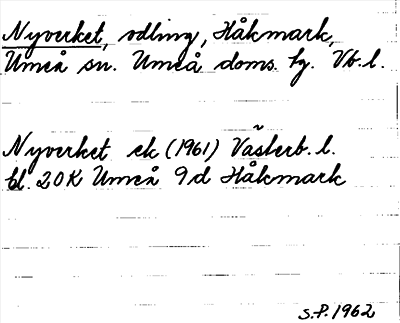 Nyverket, odling, Håkmark,
Umeå sn. Umeå doms. hg. Vb. l.
Nyverket ek (1961) Västerb. l.
bl. 20K Umeå 9d Håkmark
S.P. 1962